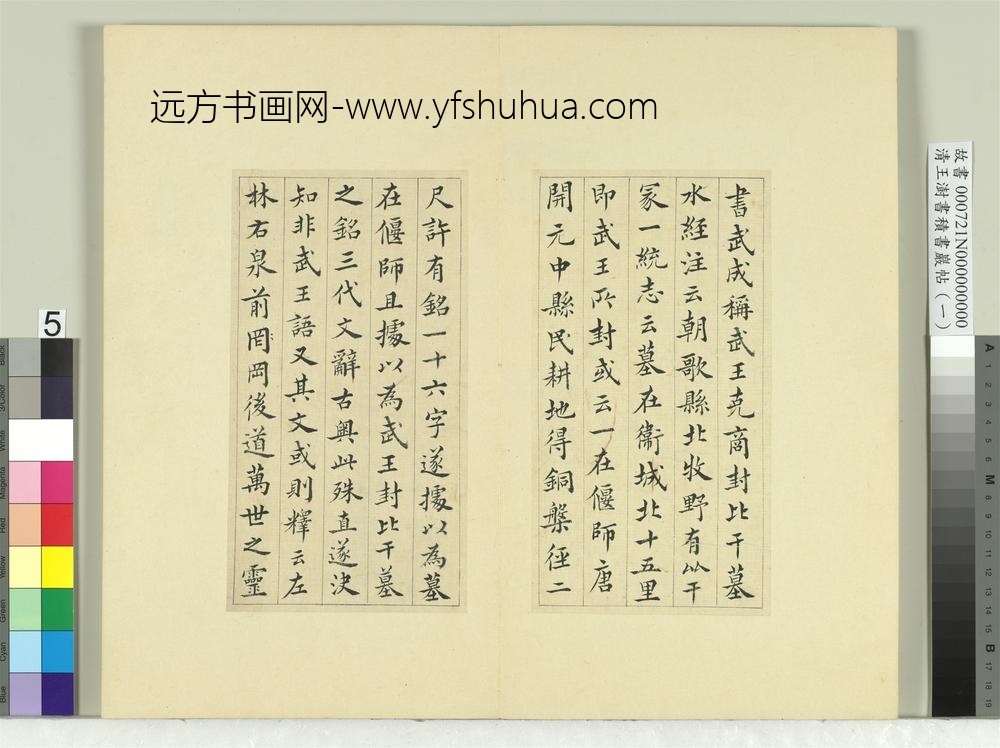 远方书画网-www.yfshuhua.com
書武成稱武王克商封比干墓
水經注云朝歌縣北牧野有比干
冢一統志云墓在衞城北十五里
即武王所封或云一在偃師唐
開元中縣民耕地得銅槃徑二
尺許有銘一十六字遂據以為墓
在偃師且據以為武王封比干墓
之銘三代文辭古奧此殊直遂決
知非武王語又其文或則釋云左
林右泉前岡岡後道萬世之靈
故書 000721N000000000
清王澍書積書巖帖（一）
5
Black
3/Color
White
Magenta
Red
Yellow
Green
Cyan
Blue
A
1
2
3
4
5
6
M
8
9
10
11
12
13
14
15
B
17
18
19